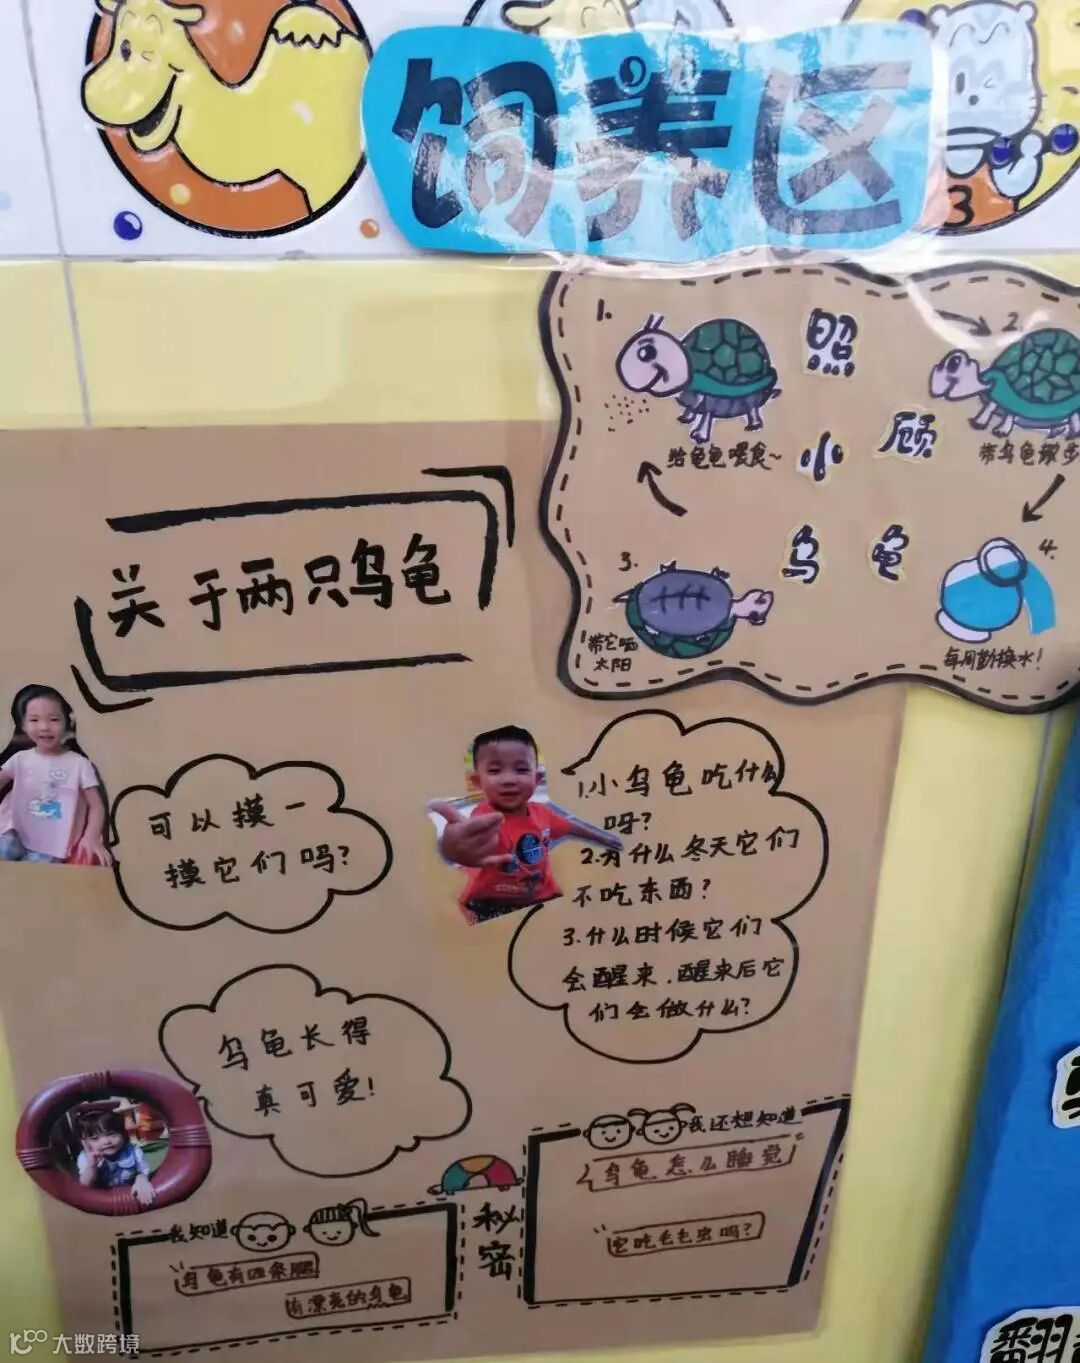 饲养区
3
照
顾
小
乌龟
1.
给龟龟喂食~
2.
带乌龟散步
3.
带它晒
太阳
4.
每周勤换水!
关于两只乌龟
可以摸一
摸它们吗?
1.小乌龟吃什么
呀?
2.为什么冬天它们
不吃东西?
3.什么时候它们
会醒来.醒来后它
们会做什么?
乌龟长得
真可爱!
我知道
乌龟有四条腿
有漂亮的乌龟
秘密
我还想知道
乌龟怎么睡觉
它吃毛毛虫吗?
翻
大数跨境